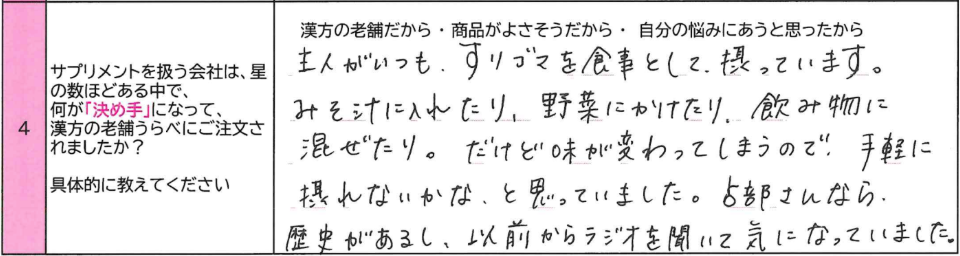 4
サプリメントを扱う会社は、星
の数ほどある中で、
何が「決め手」になって、
漢方の老舗うらべにご注文さ
れましたか？
具体的に教えてください
漢方の老舗だから・商品がよさそうだから・ 自分の悩みにあうと思ったから
主人がいつも、すりゴマを食事として、摂っています。
みそ汁に入れたり、野菜にかけたり、飲み物に
混ぜたり。だけど味が変わってしまうので、手軽に
摂れないかな、と思っていました。占部さんなら、
歴史があるし、以前からラジオを聞いて気になっていました。